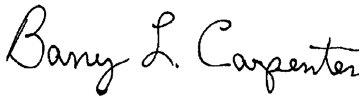 Barry L. Carpenter